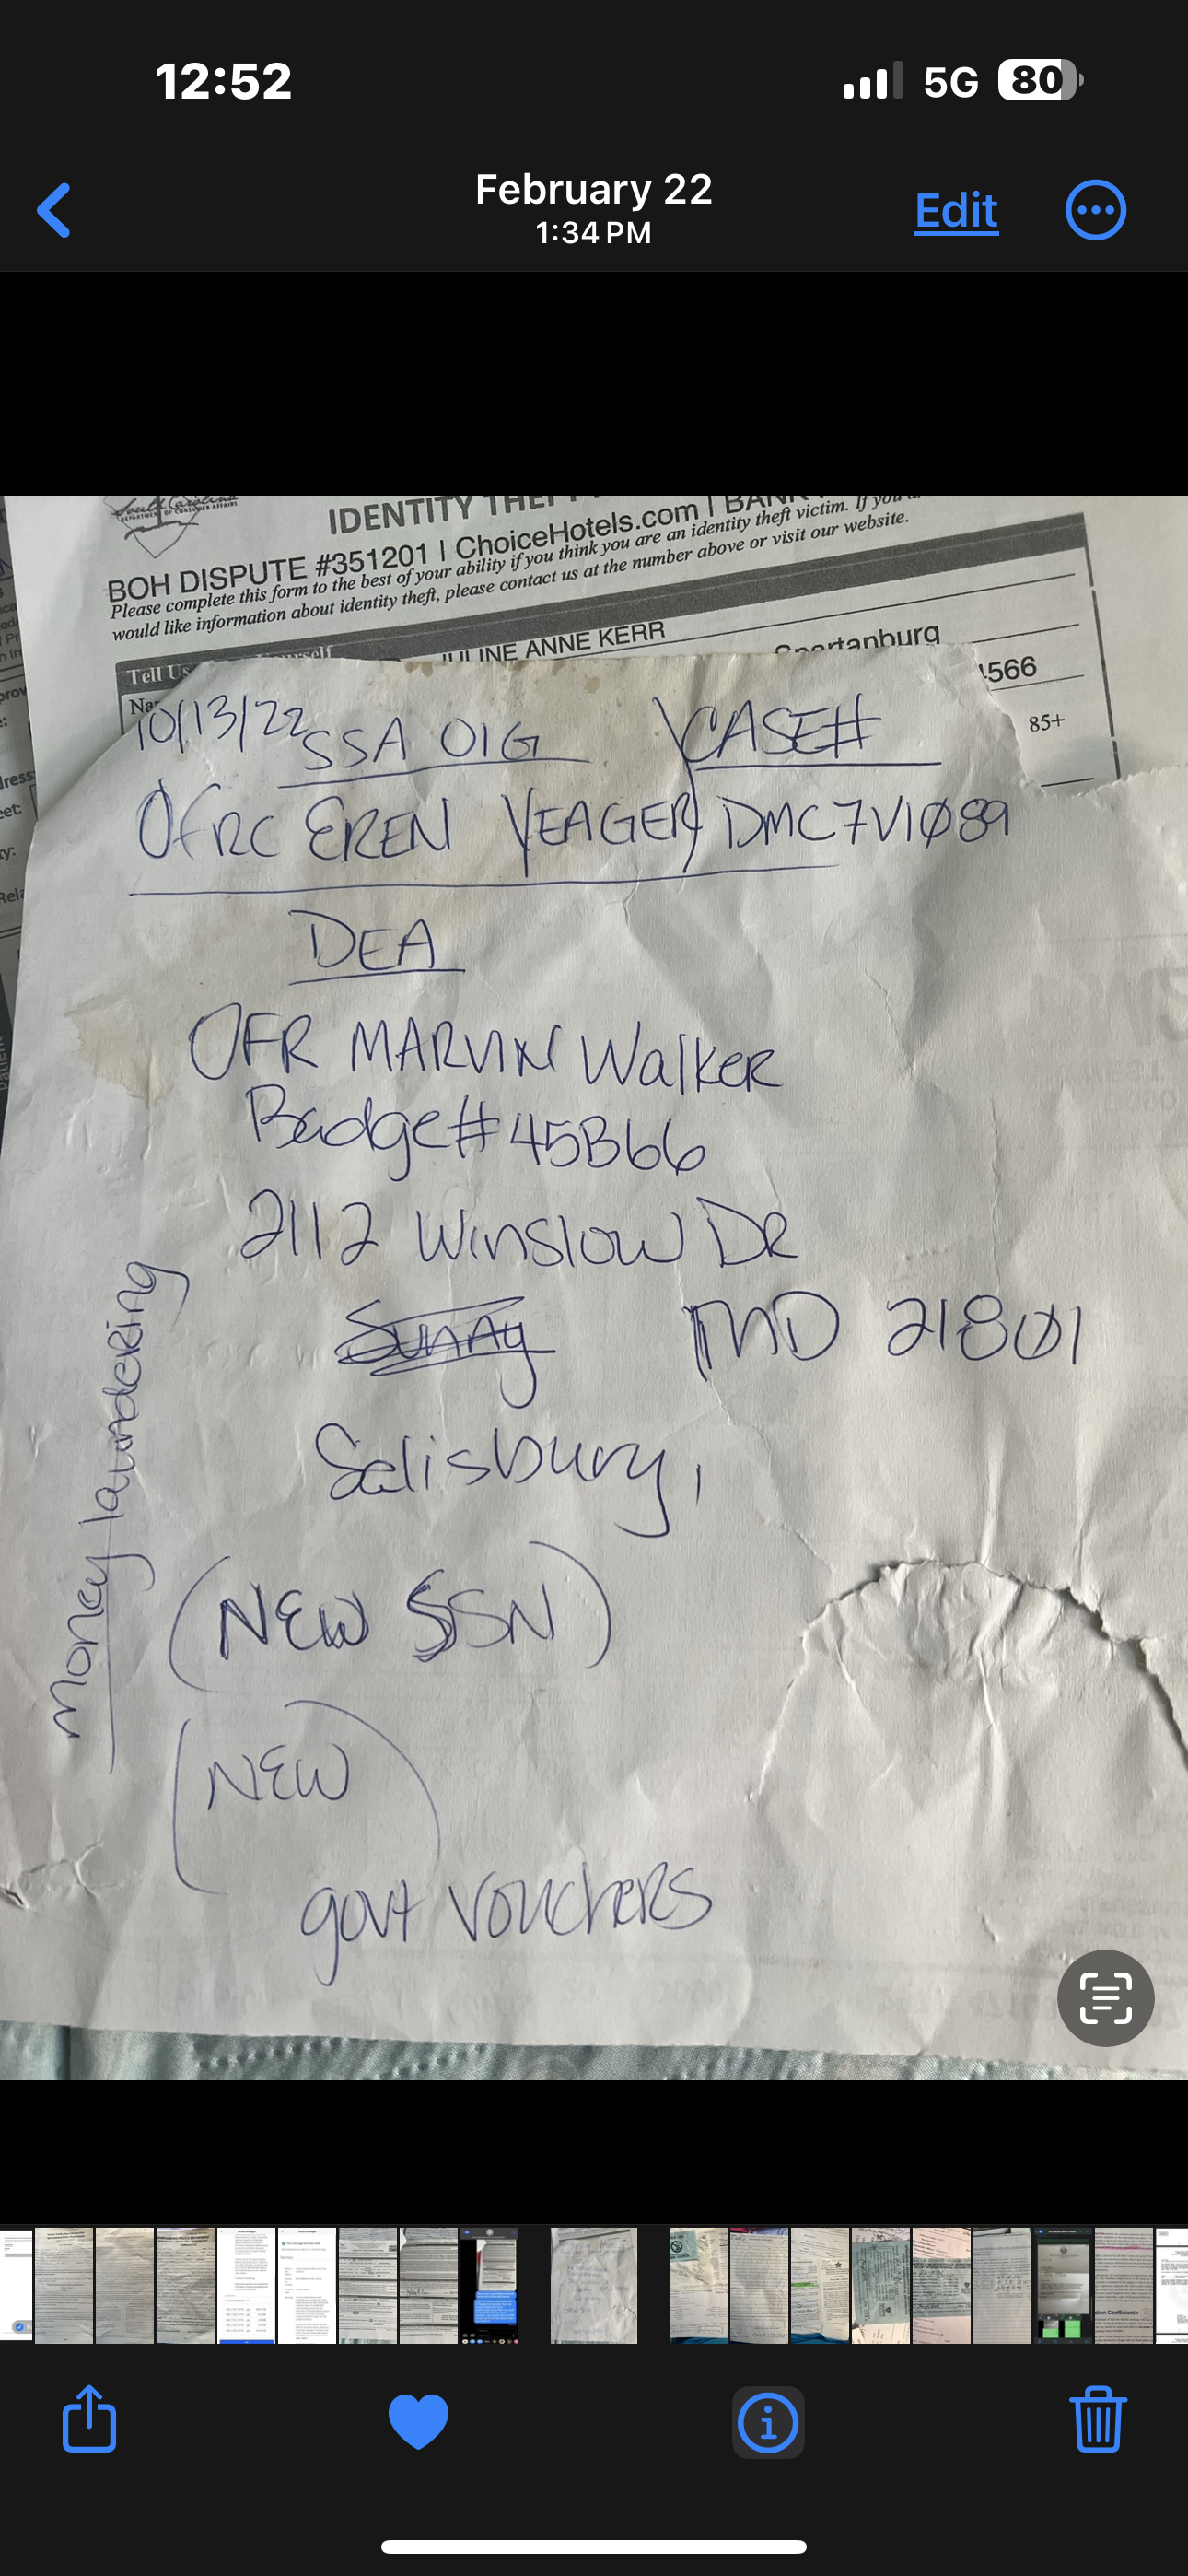 12:52
5G 80
February 22
1:34 PM
Edit
South Carolina
DEPARTMENT OF CONSUMER AFFAIRS
IDENTITY THEFT
BOH DISPUTE #351201 | ChoiceHotels.com | BANK
Please complete this form to the best of your ability if you think you are an identity theft victim. If you
would like information about identity theft, please contact us at the number above or visit our website.
Tell Us
JULINE ANNE KERR
Spartanburg
4566
85+
10/13/22 SSA OIG CASE#
OFRC EREN YEAGER DMC7V1089
DEA
OFR MARVIN Walker
Badge# 45B66
2112 Winslow DR
Sunny MD 21801
Salisbury,
money laundering
(NEW SSN)
(NEW)
govt vouchers